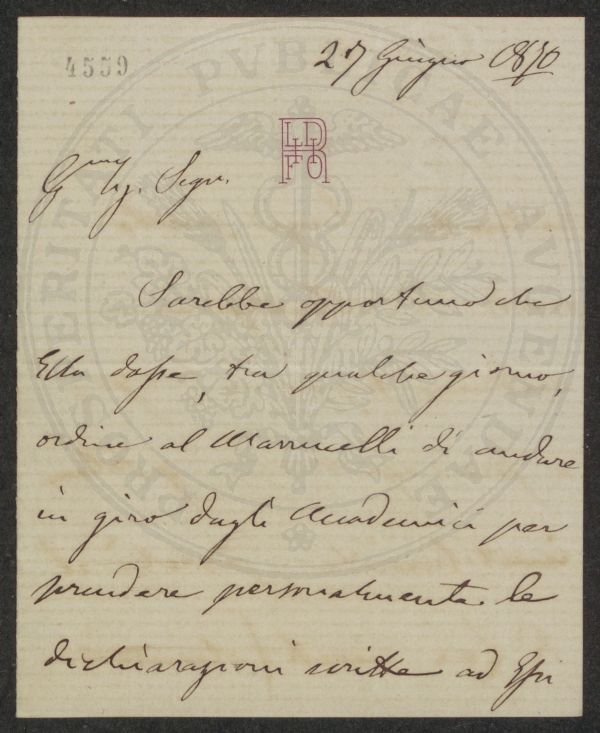 4559
27 Giugno 1870
PROSPERITATI PUBLICAE AUGENDAE
Sig.
Sarebbe opportuno che
Ella dasse, tra qualche giorno,
ordine al Marrucelli di andare
in giro dagli Accademici per
prendere personalmente le
dichiarazioni scritte ad Essi